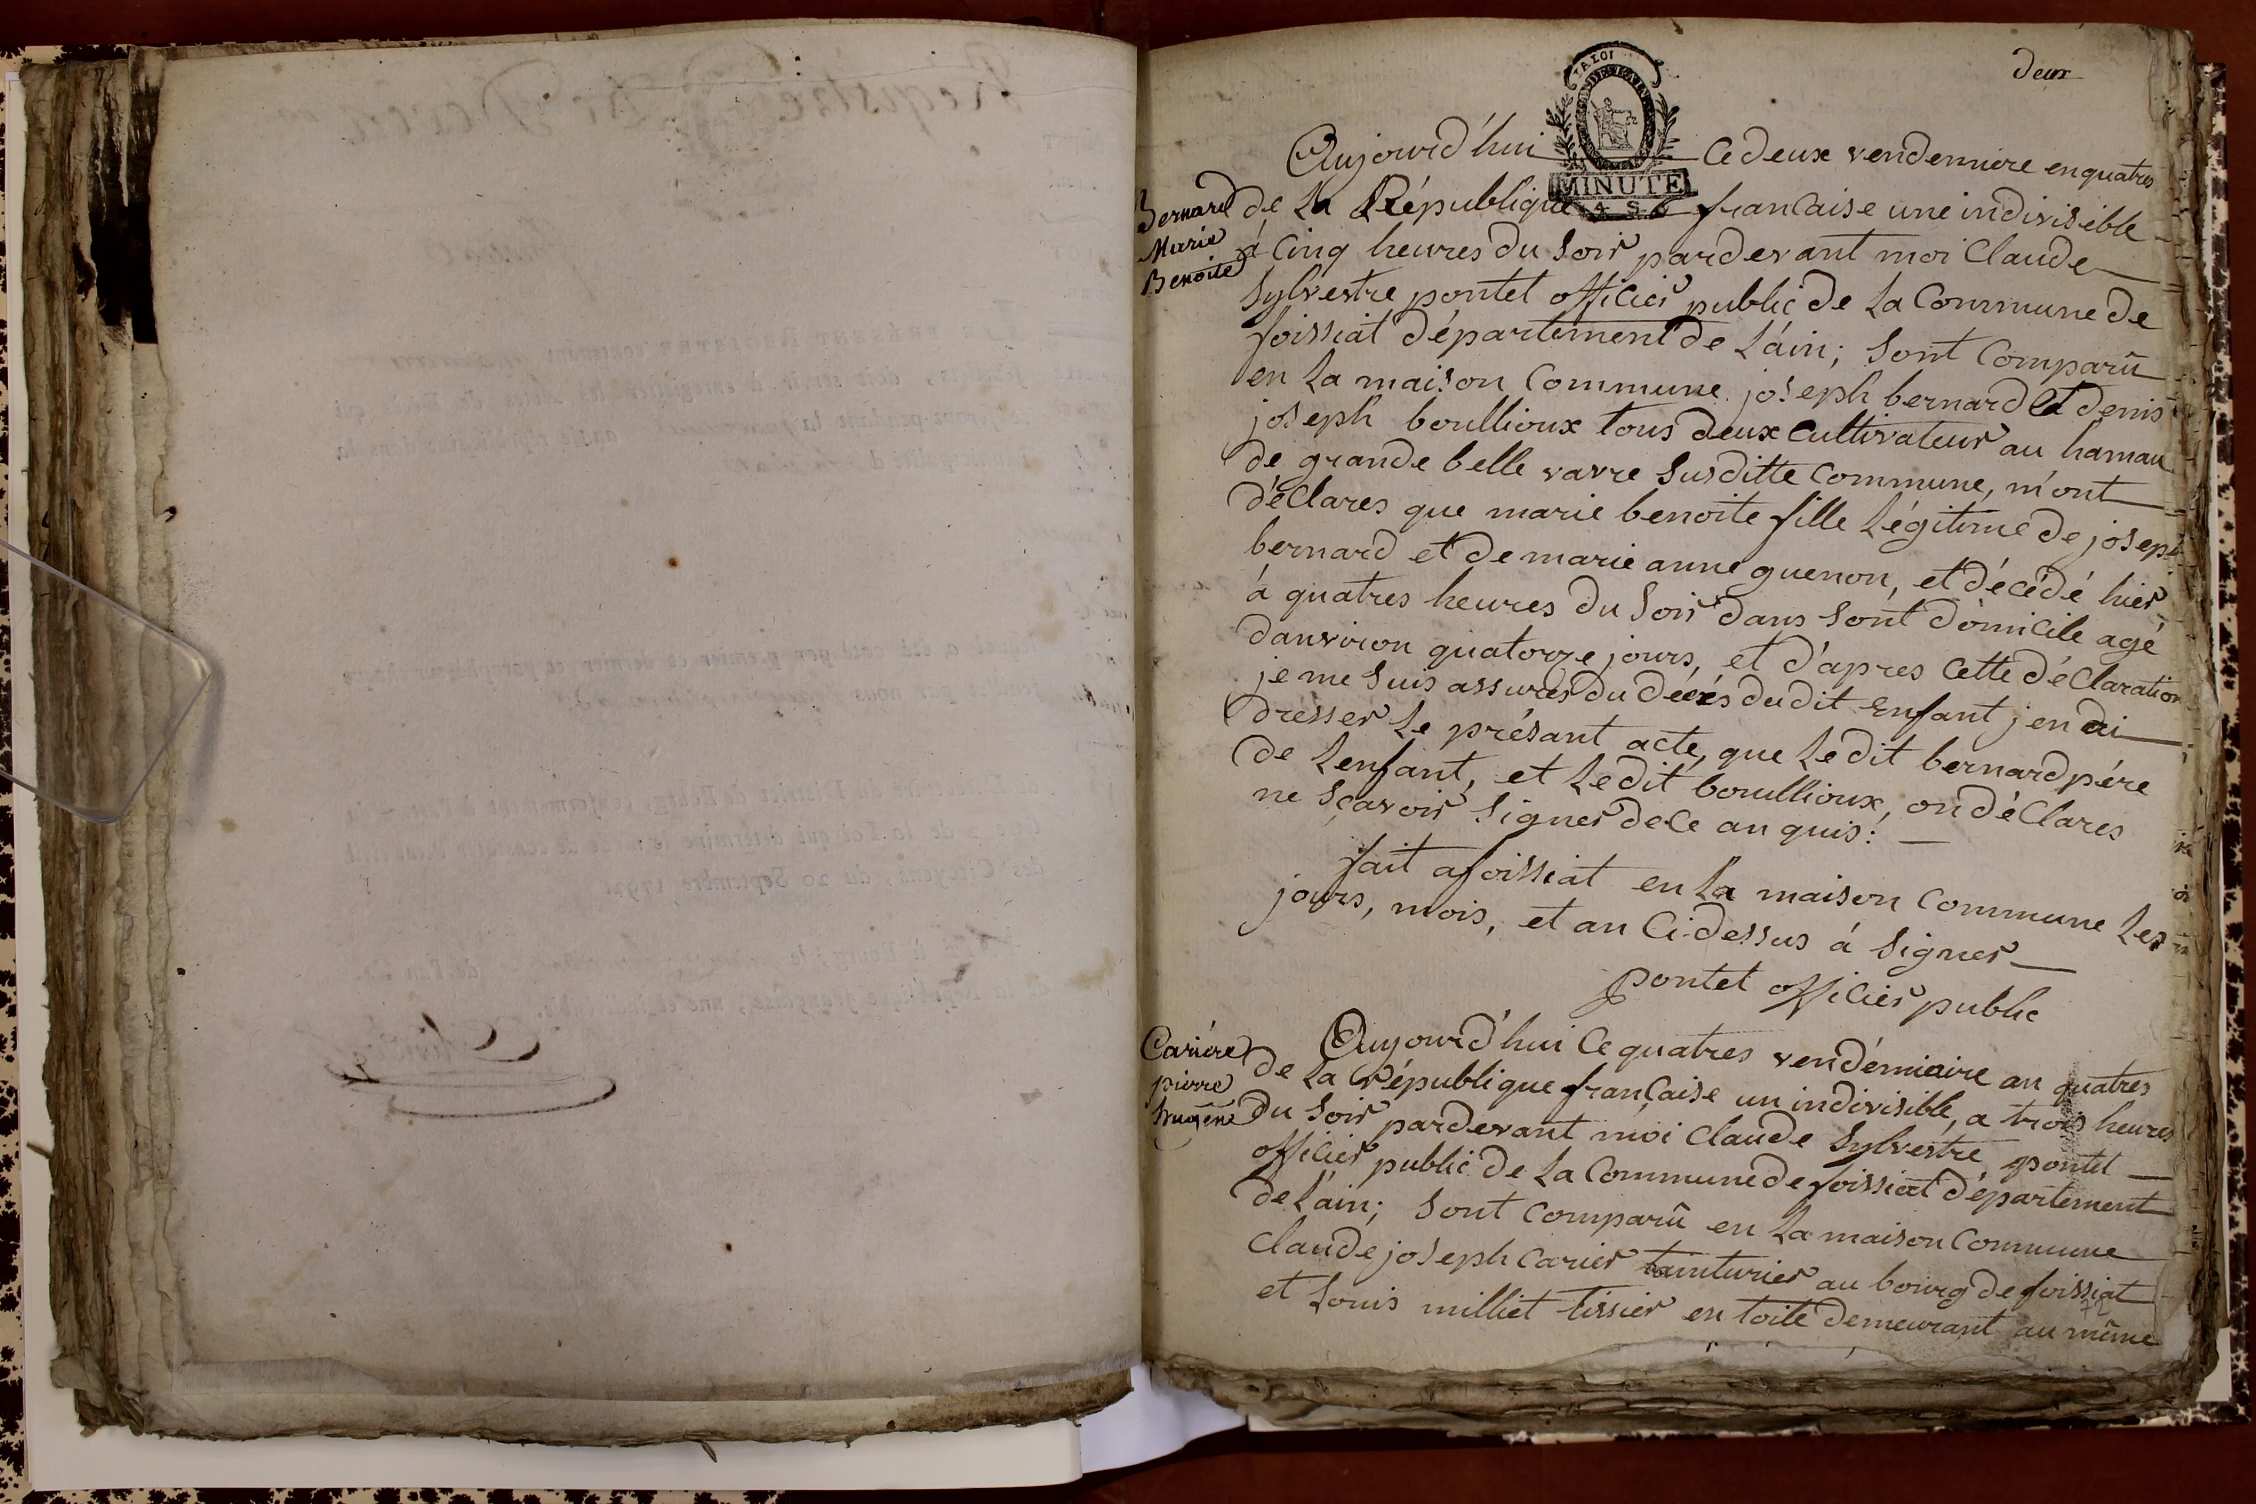 deux
LA LOI
MINUTE
4 S.
Aujourd'hui ce deux vendemiere en quatres
Bernard
Marie
Benoite
de La République francaise une indivisible
à cinq heures du soir pardevant moi Claude
Sylvestre pontet officier public de La Commune de
foissiat département de L'ain; sont comparû
en La maison Commune joseph bernard et denis
joseph boullioux tous deux cultivateur au hamau
de grande belle vavre susditte commune, m'ont
déclares que marie benoite fille Légitime de joseph
bernard et de marie anne guenon, et décédé hier
à quatres heures du soir dans sont domicile agé
danviron quatorze jours, et d'apres cette déclaration
je me suis assurés du décés dudit Enfant j'en ai
dresser Le présant acte, que Le dit bernard pére
de Lenfant, et Ledit boullioux, on déclares
ne sçavoir signer de ce an quis:
fait a foissiat en La maison commune Les
jours, mois, et an Ci dessus à signer
pontet officier public
Cariére
pierre
Aujourd'hui ce quatres vendémiaire an quatres
de La république française un indivisible, a trois heures
du soir pardevant moi Claude Sylvestre pontet
officier public de La Commune de foissiat département
de L'ain; sont comparû en La maison Commune
Claude joseph carier tainturier au bourg de foissiat
et Louis milliet tissier en toile demeurant au même